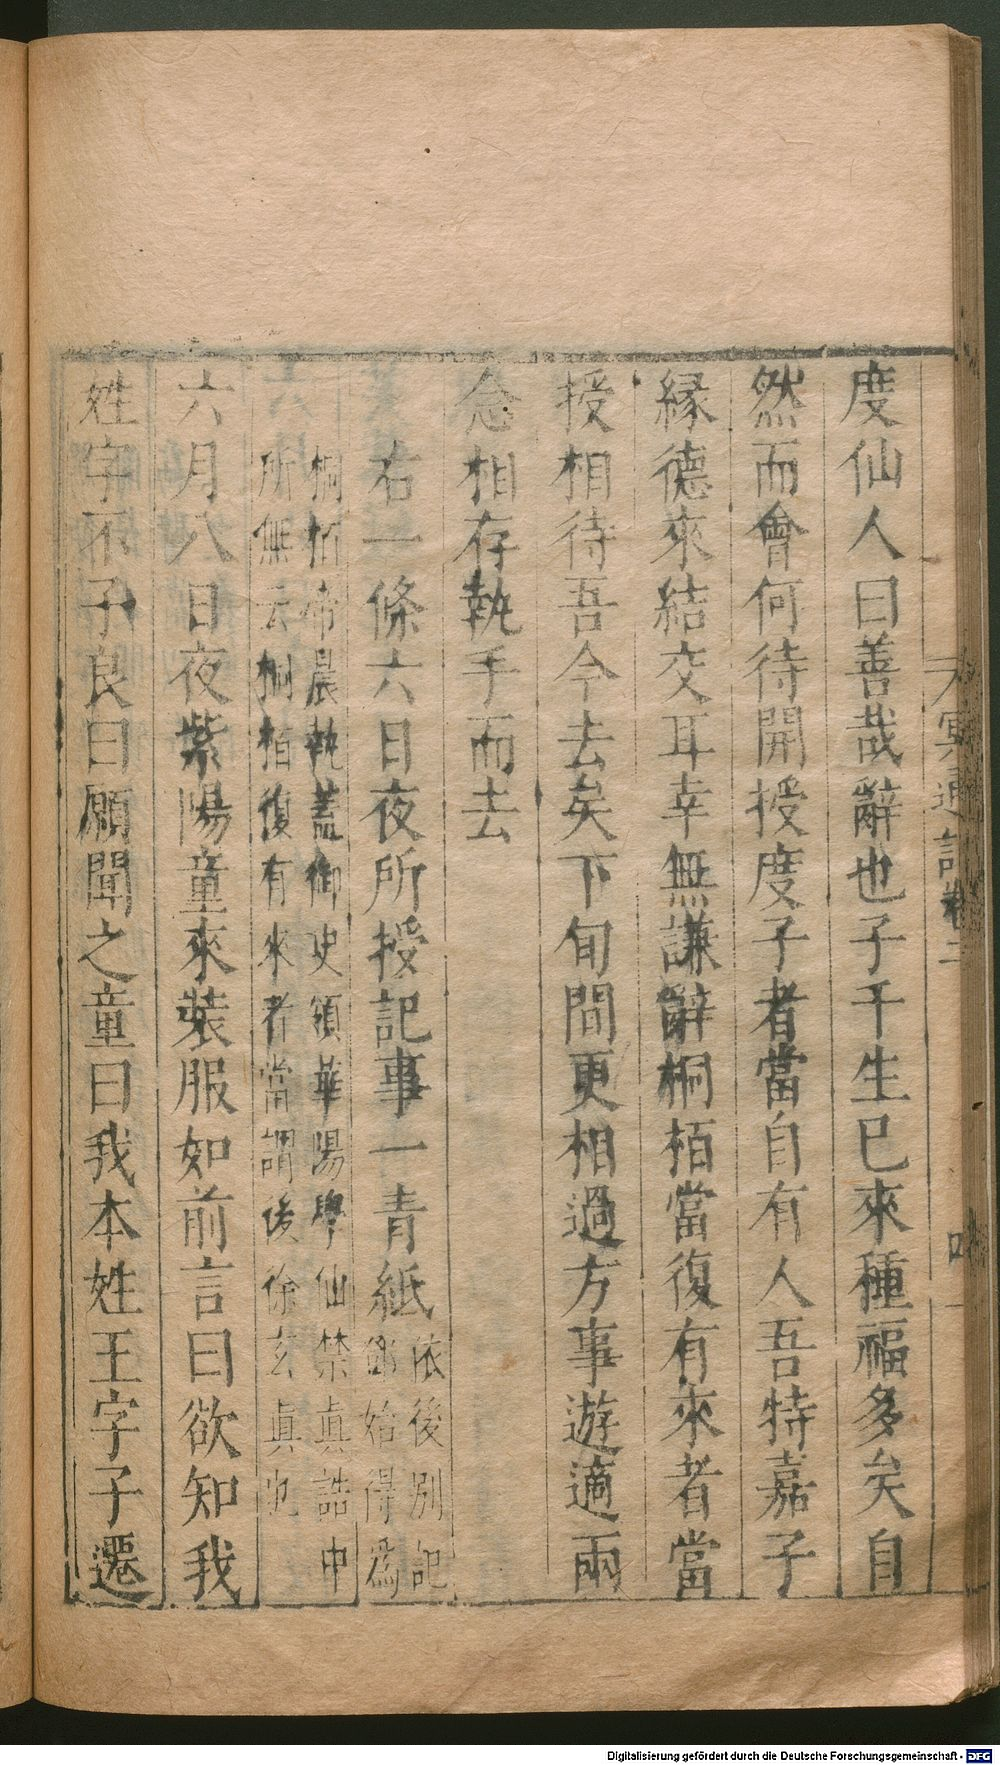 度仙人曰善哉辭也子千生已來種福多矣自
然而會何待開授度子者當自有人吾特嘉子
緣德來結交耳幸無謙辭桐栢當復有來者當
授相待吾今去矣下旬間更相過方事遊適兩
念相存執手而去
右一條六日夜所授記事一青紙
依後別記
鄉始得爲
桐栢帝晨執蓋御史領華陽學仙禁眞誥中
所無云桐栢復有來者當謂後徐玄眞也
六月八日夜紫陽童來裝服如前言曰欲知我
姓字不子良曰願聞之童曰我本姓王字子遷
冥通記卷二
四
Digitalisierung gefördert durch die Deutsche Forschungsgemeinschaft - DFG